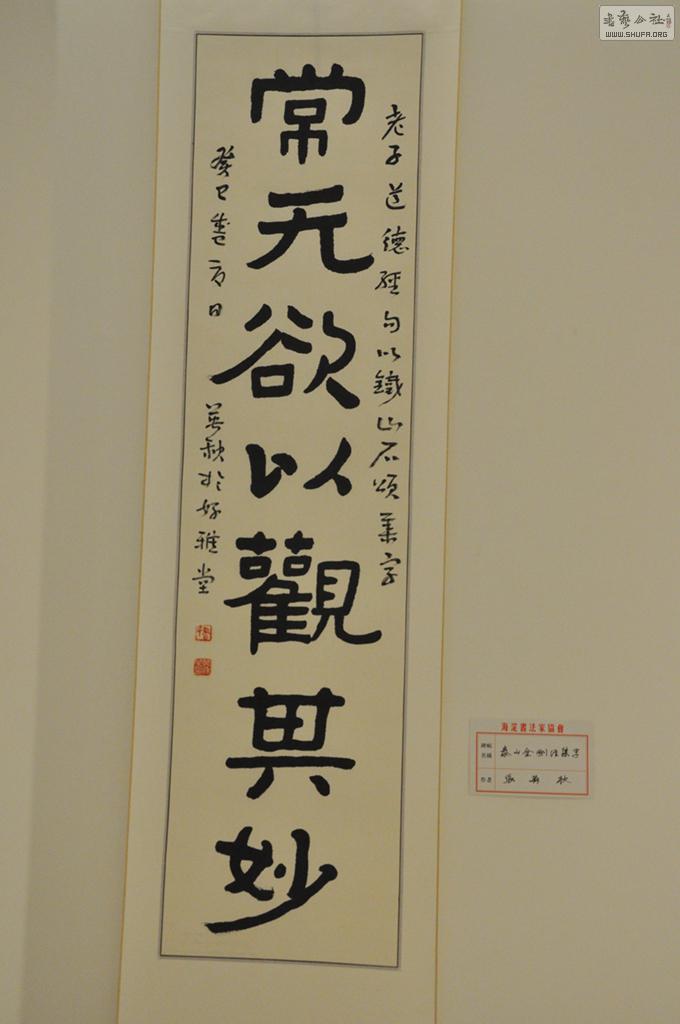 常无欲以觀其妙
老子道德經句以鐵山石頌集字
癸巳春夏日 萬秋於好雅堂
海淀書法家協會
泰山金剛經集字
作者
WWW.SHUFA.ORG